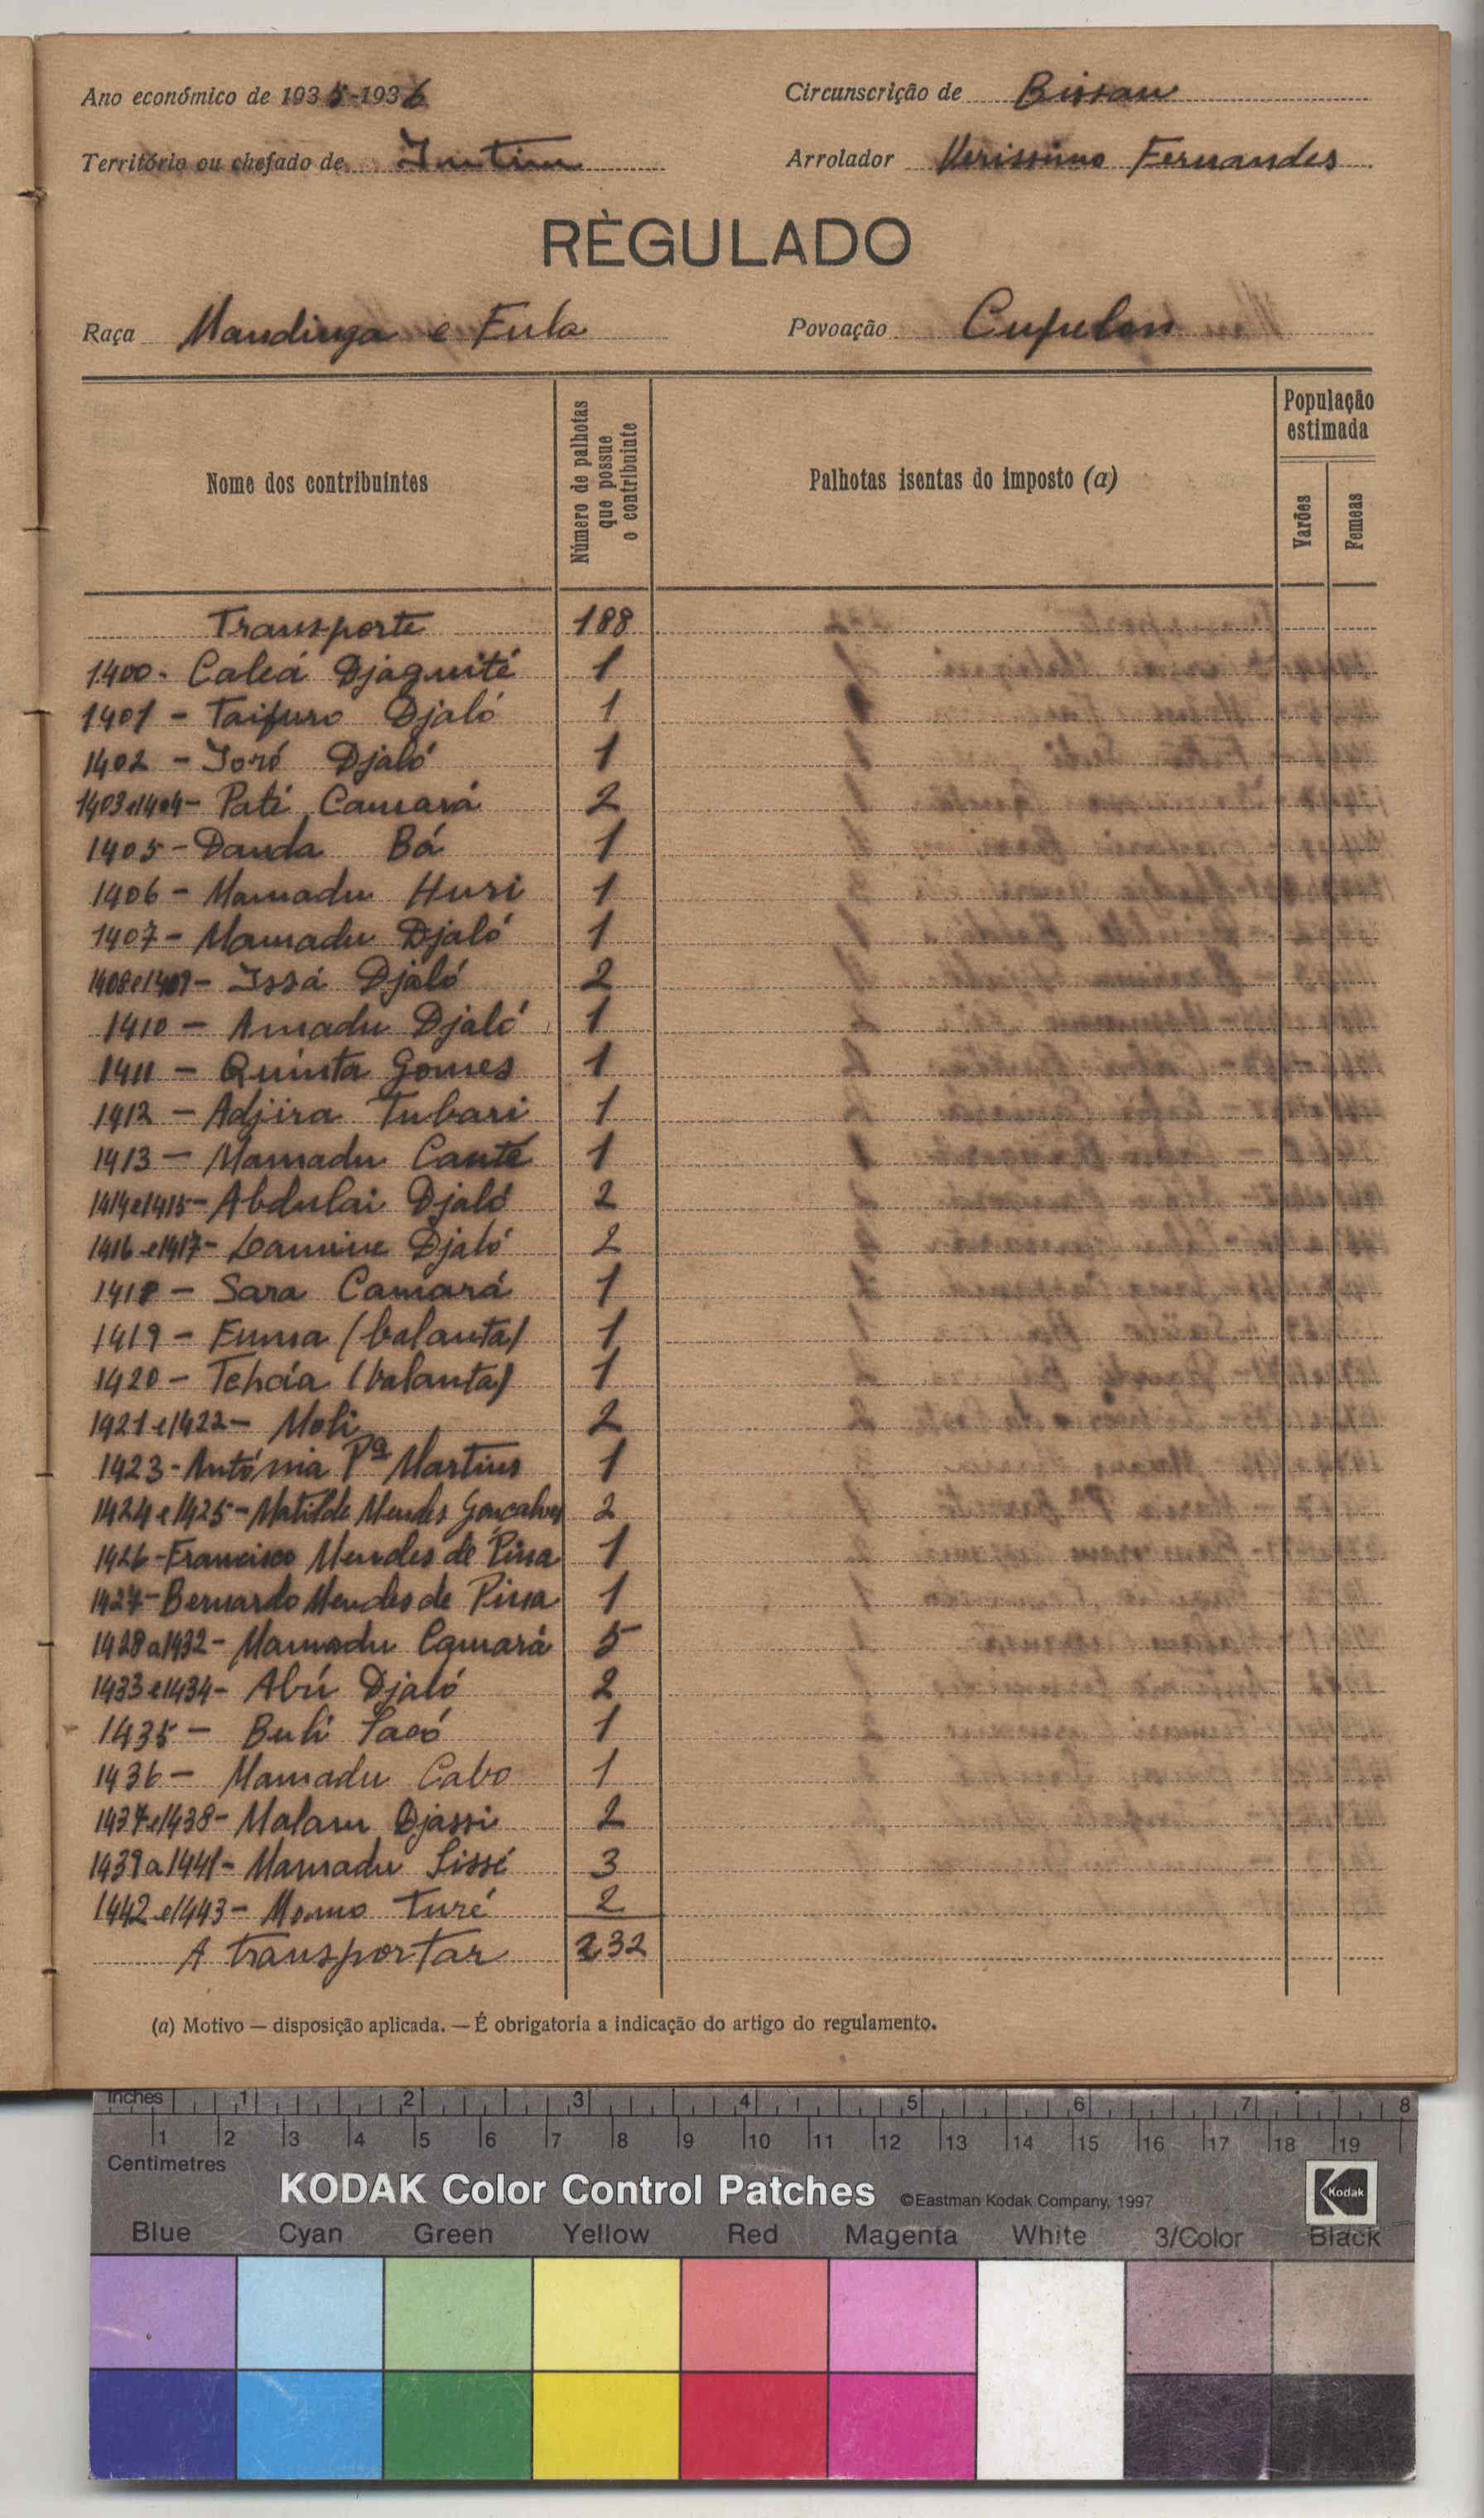 Ano económico de 1935-1936
Circunscrição de Bissau
Território ou chefado de Intim
Arrolador Verissimo Fernandes
RÈGULADO
Raça Mandinga e Fula
Povoação Cupelon
Nome dos contribuintes
Número de palhotas que possue o contribuinte
Palhotas isentas do imposto (a)
População estimada
Varões
Femeas
Transporte 188
1400 - Caleá Djaquité 1
1401 - Taifuro Djaló 1
1402 - Joró Djaló 1
1403 e 1404 - Paté Camará 2
1405 - Dauda Bá 1
1406 - Mamadu Huri 1
1407 - Mamadu Djaló 1
1408 e 1409 - Issá Djaló 2
1410 - Amadu Djaló 1
1411 - Quinta Gomes 1
1412 - Adjira Tubari 1
1413 - Mamadu Canté 1
1414 e 1415 - Abdulai Djaló 2
1416 e 1417 - Lamine Djaló 2
1418 - Sara Camará 1
1419 - Funsa (balanta) 1
1420 - Tehóia (balanta) 1
1421 e 1422 - Moli 2
1423 - Antónia Pª Martins 1
1424 e 1425 - Matilde Mendes Gonçalves 2
1426 - Francisco Mendes de Pina 1
1427 - Bernardo Mendes de Pina 1
1428 a 1432 - Mamadu Camará 5
1433 e 1434 - Abú Djaló 2
1435 - Buli Sacó 1
1436 - Mamadu Cabo 1
1437 e 1438 - Malam Djassi 2
1439 a 1441 - Mamadu Sissé 3
1442 e 1443 - Momo Turé 2
A transportar 232
(a) Motivo — disposição aplicada. — É obrigatoria a indicação do artigo do regulamento.
Inches 1 2 3 4 5 6 7 8
1 2 3 4 5 6 7 8 9 10 11 12 13 14 15 16 17 18 19
Centimetres
KODAK Color Control Patches ©Eastman Kodak Company, 1997 Kodak
Blue Cyan Green Yellow Red Magenta White 3/Color Black